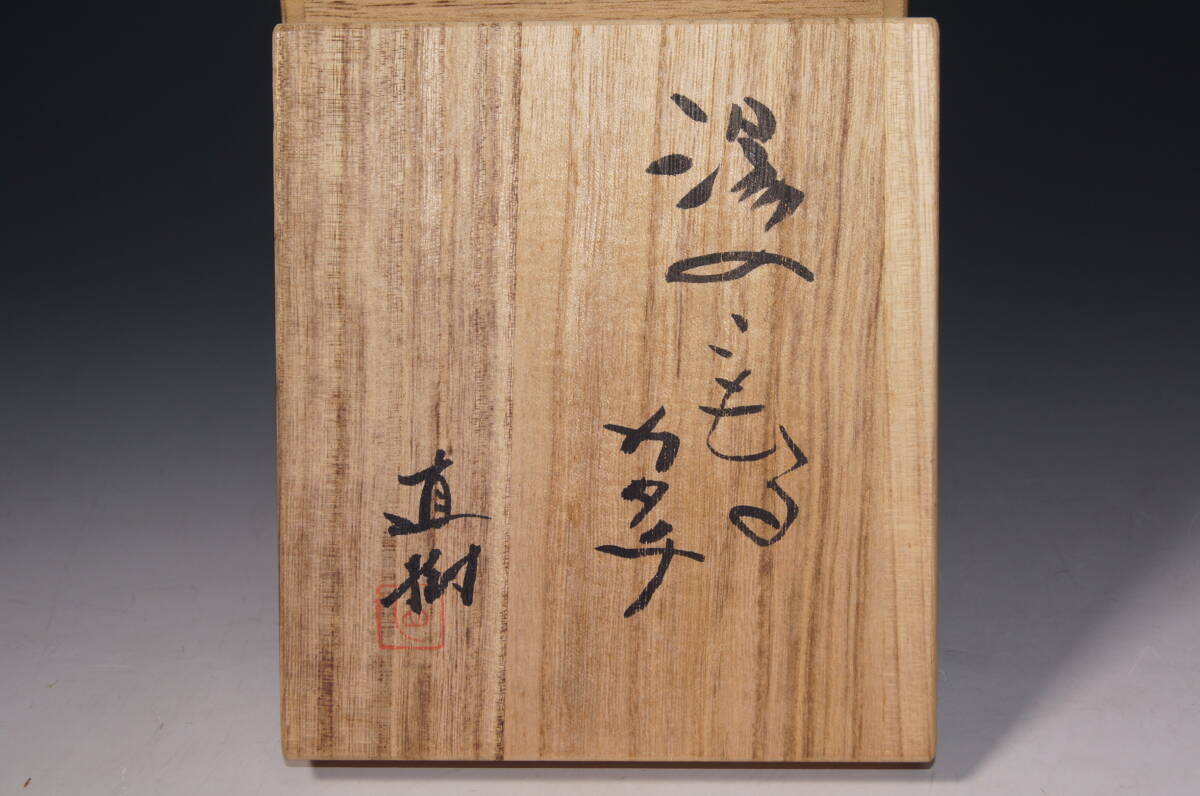 湯のこもる
カタチ
直樹